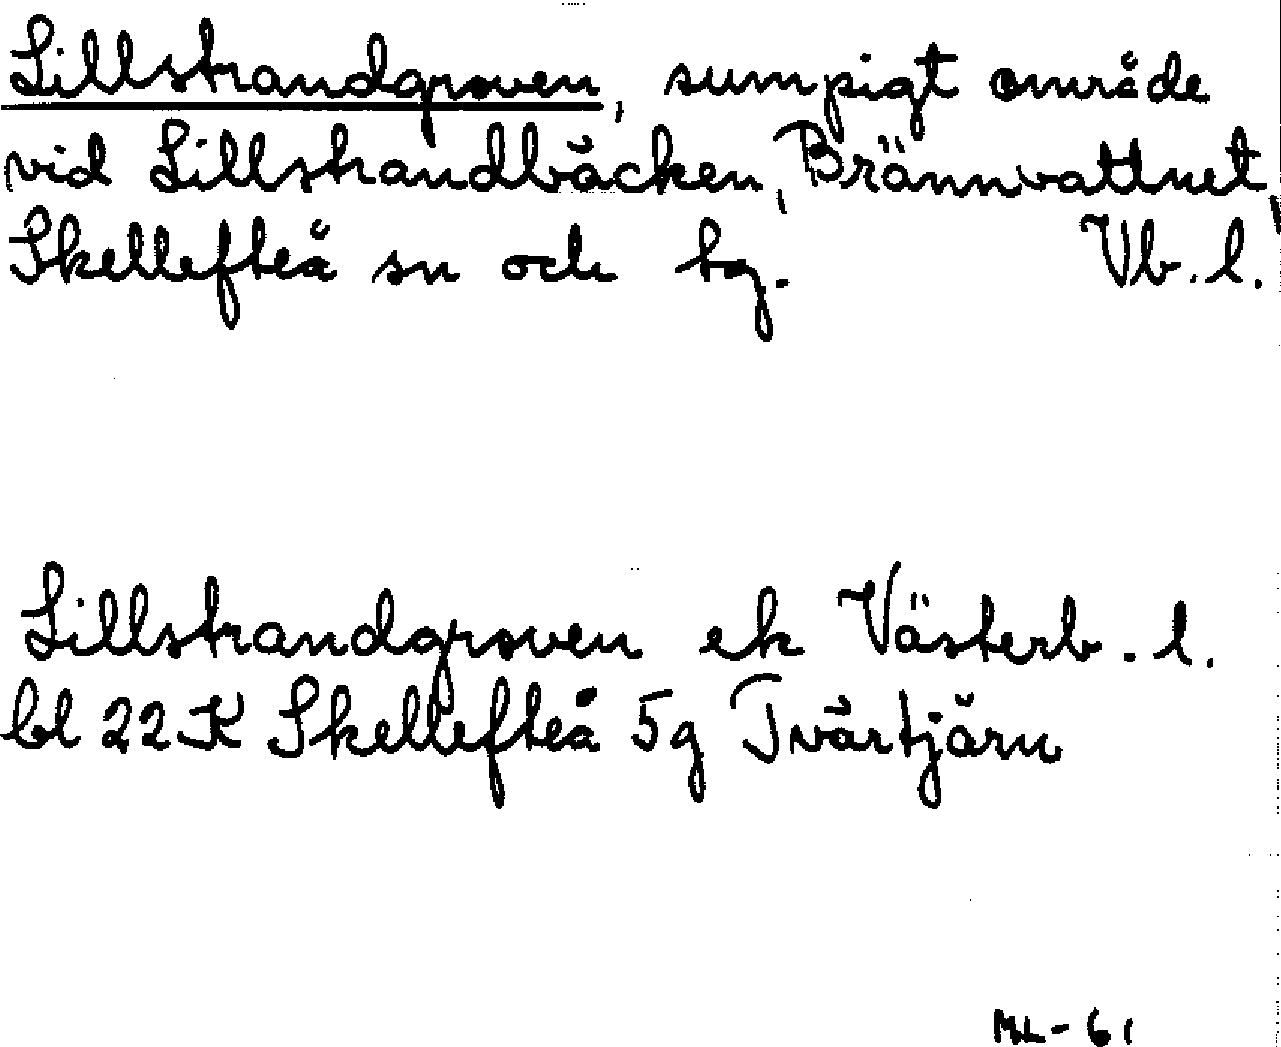 Lillstrandgroven, sumpigt område
vid Lillstrandbäcken, Brännvattnet,
Skellefteå sn och tg. Vb. l.
Lillstrandgroven ek Västerb. l.
bl 22 K Skellefteå 5g Tvärtjärn
ML-61